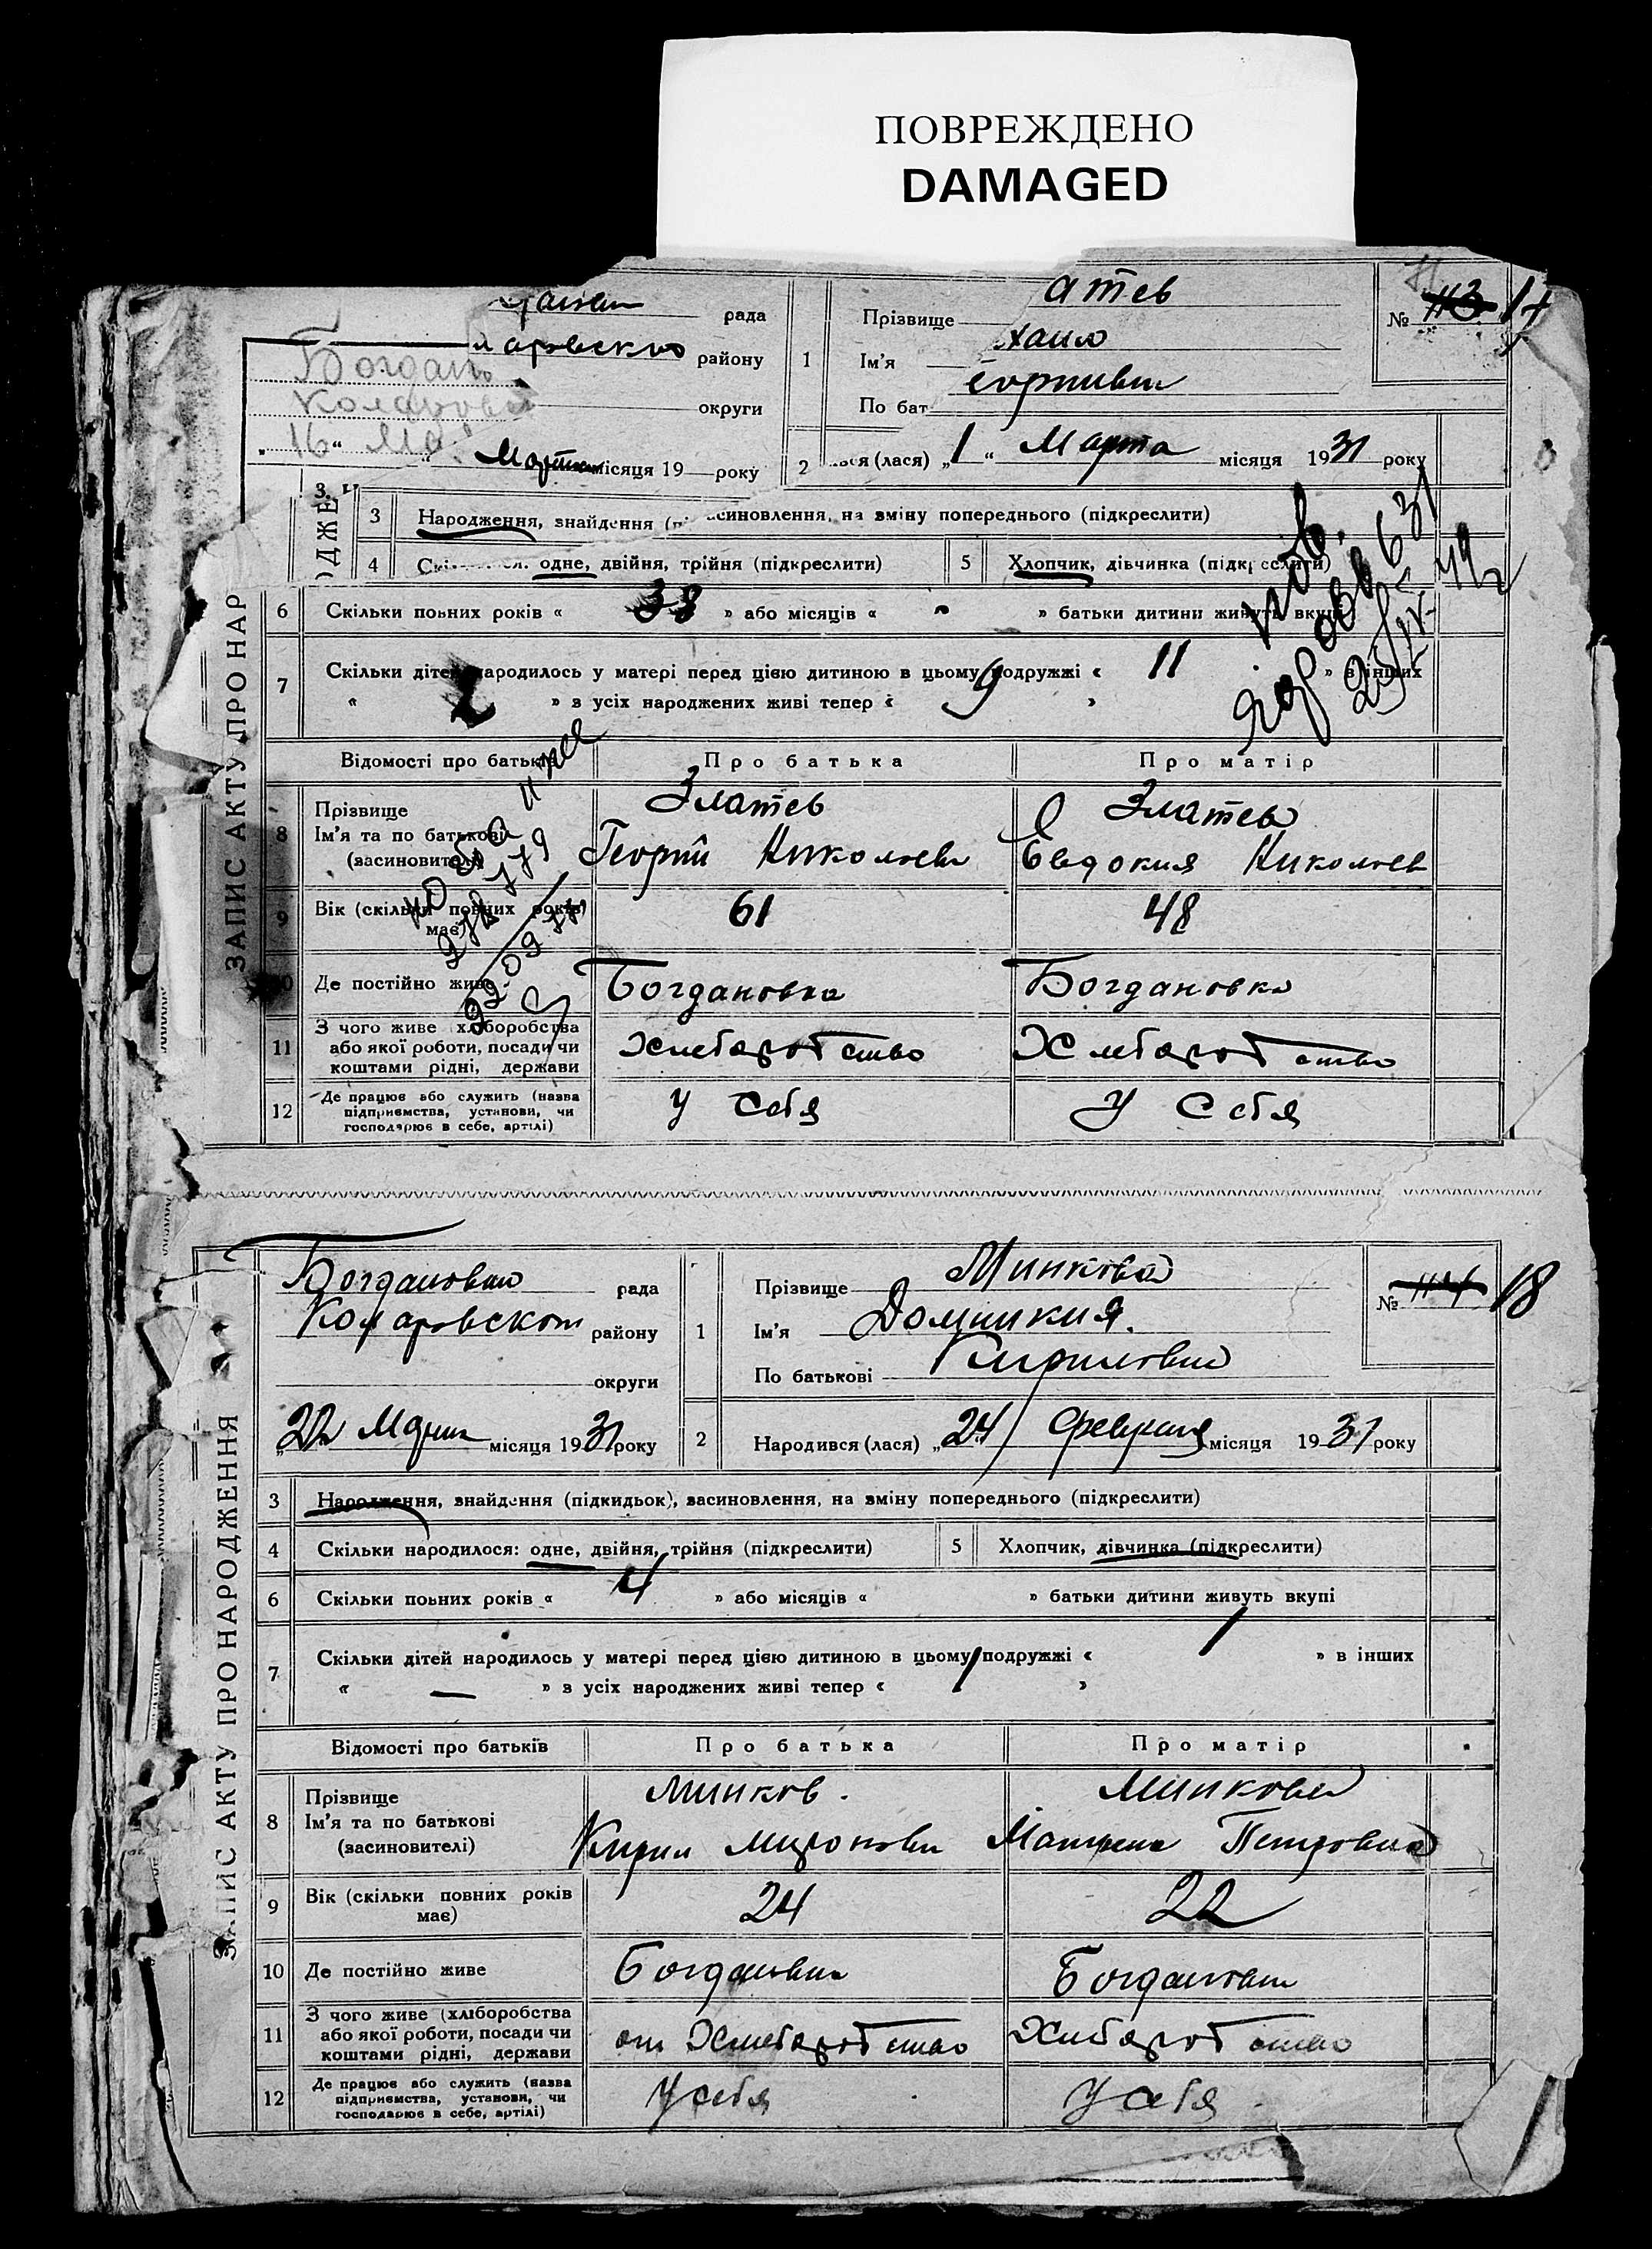 ПОВРЕЖДЕНО
DAMAGED
рада
району
округи
Богдан
"16"
Марта місяця 19 року
1
Прізвище атев
Ім'я хаил
По бат
№ 113 17
2 я (лася) "1" Марта місяця 1931 року
3 Народження, знайдення (пі асиновлення, на зміну попереднього (підкреслити)
4 одне, двійня, трійня (підкреслити)
5 Хлопчик, дівчинка (підкреслити)
6 Скільки повних років « 38 » або місяців « - » батьки дитини живуть вкупі
7 Скільки дітей народилось у матері перед цією дитиною в цьому подружжі « 11 » в інших
« 2 » з усіх народжених живі тепер « 9 »
ЗАПИС АКТУ ПРО НАР ОДЖЕ
Відомості про батьків
Про батька
Про матір
8 Прізвище
Ім'я та по батькові
(засновителі)
Златев
Георгий Николаев
Златева
Евдокия Николаев
9 Вік (скільки повних років має)
61
48
10 Де постійно живе
Богдановка
Богдановка
11 З чого живе (хліборобства
або якої роботи, посади чи
коштами рідні, держави
Хлеборобство
Хлеборобство
12 Де працює або служить (назва
підприємства, установи, чи
господарює в себе, артілі)
У себя
У себя
ЗАПИС АКТУ ПРО НАРОДЖЕННЯ
Богдановка рада
Коларовского району
округи
"22 Марта місяця 1931 року
1
Прізвище Минкова
Ім'я Домникия.
По батькові Кириловна
№ 114 18
2 Народився (лася) "24" Февраля місяця 1931 року
3 Народження, знайдення (підкидьок), засиновлення, на зміну попереднього (підкреслити)
4 Скільки народилося: одне, двійня, трійня (підкреслити)
5 Хлопчик, дівчинка (підкреслити)
6 Скільки повних років « 4 » або місяців « » батьки дитини живуть вкупі
7 Скільки дітей народилось у матері перед цією дитиною в цьому подружжі « 1 » в інших
« — » з усіх народжених живі тепер « 1 »
Відомості про батьків
Про батька
Про матір
8 Прізвище
Ім'я та по батькові
(засиновителі)
Минков.
Кирил Миронови
Минкова
Матрена Петровна
9 Вік (скільки повних років
має)
24
22
10 Де постійно живе
Богдановка
Богдановка
11 З чого живе (хліборобства
або якої роботи, посади чи
коштами рідні, держави
от Хлеборобство
Хлеборобство
12 Де працює або служить (назва
підприємства, установи, чи
господарює в себе, артілі)
У себя
У себя